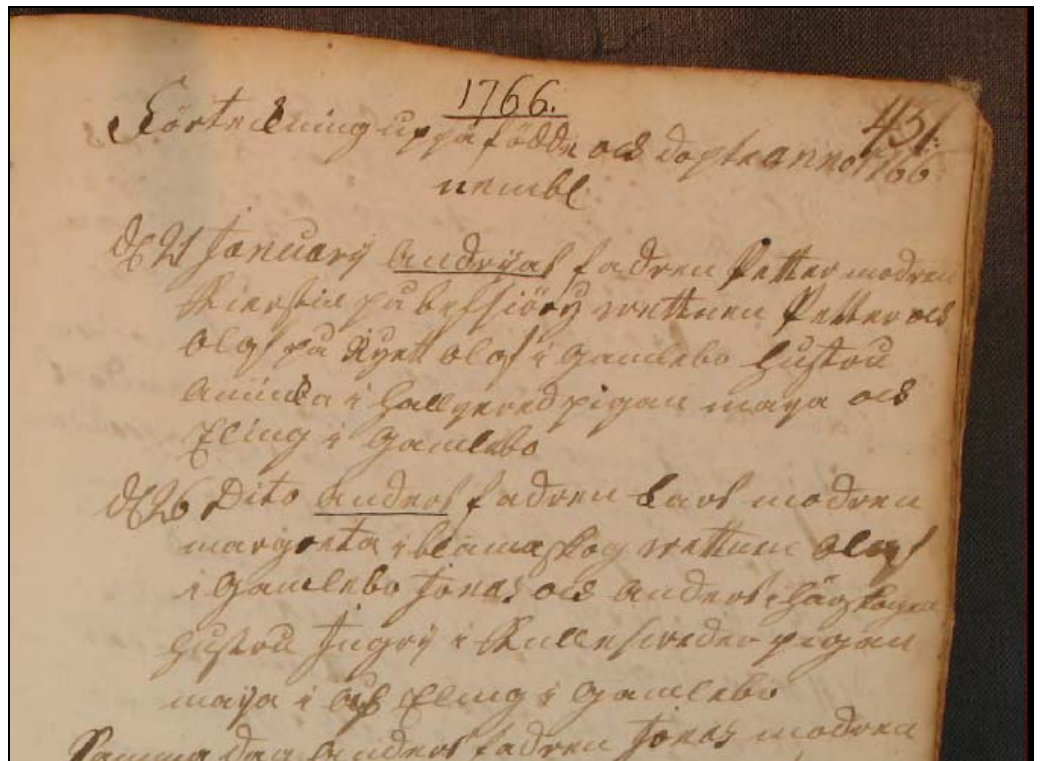 1766.
431.
Förteckning uppå födde och döpte anno 1766
nembl
d 21 January andryas fadren Petter modren
Kierstin på wettnen Petter och
Olof på Ryet Olof i Gamlebo hustru
Annika i Hallgered pigan maya och
Eling i Gamlebo
d 26 Dito anders fadren Lars modren
margreta i wettnen Olof
i Gamlebo Jonas och anders i
hustru Ingri i pigan
maya i och Eling i Gamlebo
Samma dag anders fadren Jonas modren